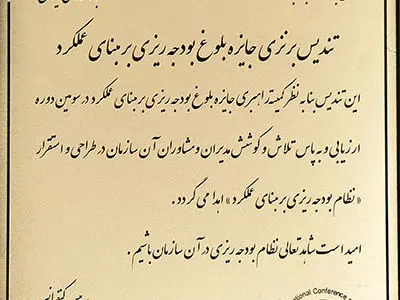 تندیس برنزی جایزه بلوغ بودجه ریزی بر مبنای عملکرد
این تندیس بنا به نظر کمیته راهبری جایزه بلوغ بودجه ریزی بر مبنای عملکرد در سومین دوره
ارزیابی و به پاس تلاش و کوشش مدیران و مشاوران آن سازمان در طراحی و استقرار
« نظام بودجه ریزی بر مبنای عملکرد » اهدا می گردد .
امید است شاهد تعالی نظام بودجه ریزی در آن سازمان باشیم .
International Conference